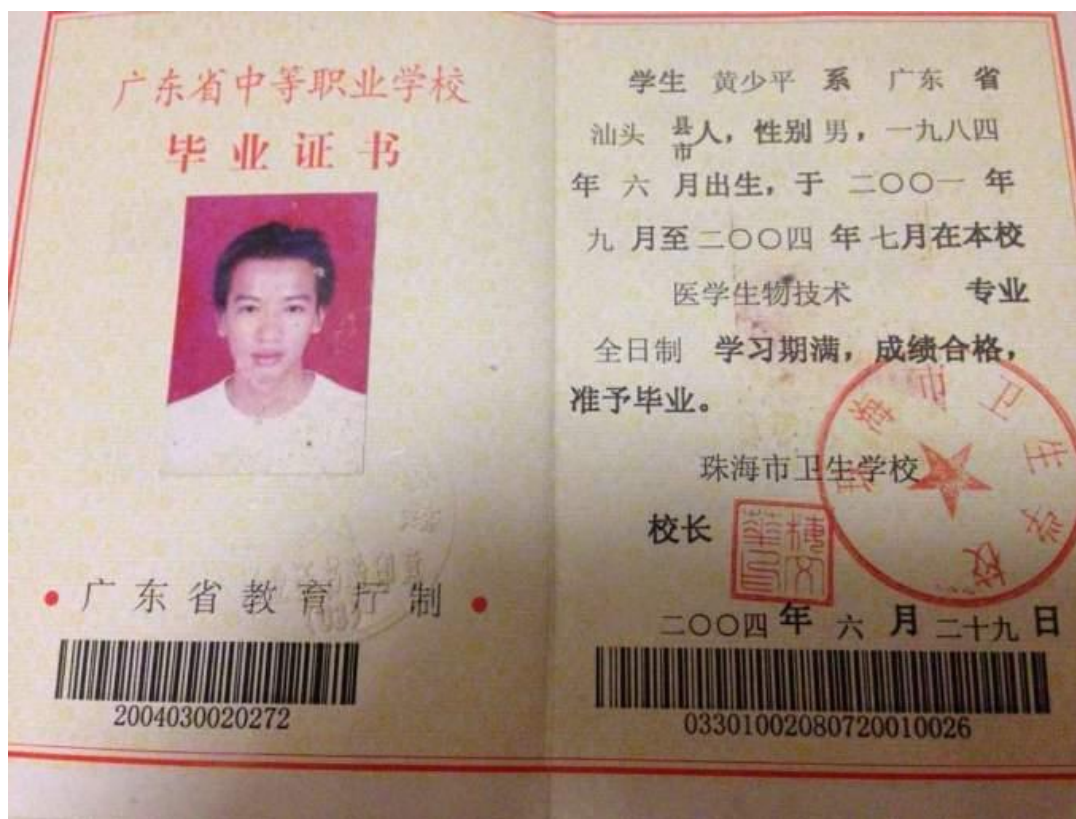 广东省中等职业学校
毕业证书
广东省教育厅制
2004030020272
学生 黄少平 系 广东 省
汕头 县市人，性别 男，一九八四
年 六 月出生，于 二〇〇一 年
九 月至二〇〇四 年 七月在本校
医学生物技术 专业
全日制 学习期满，成绩合格，
准予毕业。
珠海市卫生学校
校长
珠海市卫生学校
二〇〇四 年 六 月 二十九 日
03301002080720010026